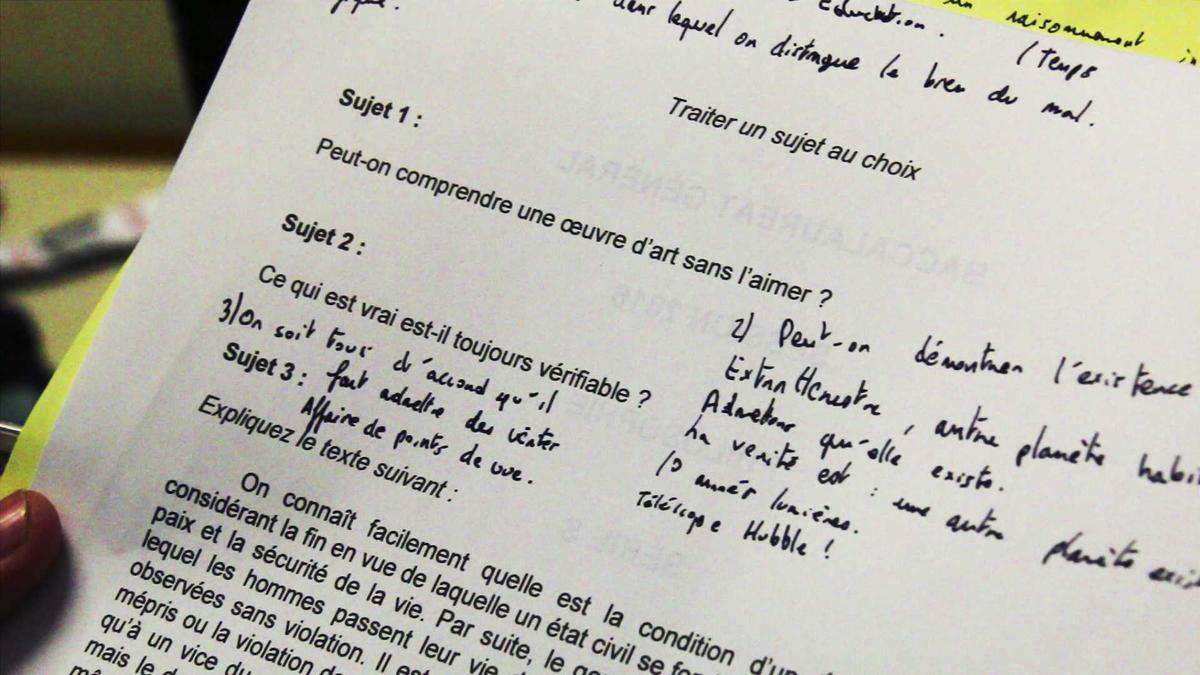 un raisonnement
Education. (Temps
dans lequel on distingue le bien du mal.
Traiter un sujet au choix
Sujet 1 :
Peut-on comprendre une œuvre d'art sans l'aimer ?
Sujet 2 :
Ce qui est vrai est-il toujours vérifiable ?
3) On soit tous d'accord qu'il
faut admettre des
Affaire de points de vue.
2) Peut-on démontrer l'existence
Extra terrestre, autre planète
Admettons qu'elle existe.
La vérité est : une autre planète
10 années lumières.
Téléscope Hubble !
Sujet 3 :
Expliquez le texte suivant :
On connaît facilement quelle est la condition d'un
considérant la fin en vue de laquelle un état civil se
paix et la sécurité de la vie. Par suite, le
lequel les hommes passent leur vie
observées sans violation. Il
mépris ou la violation
qu'à un vice du
mais le
BACCALAUREAT GÉNÉRAL
SESSION 2016
SÉRIE S